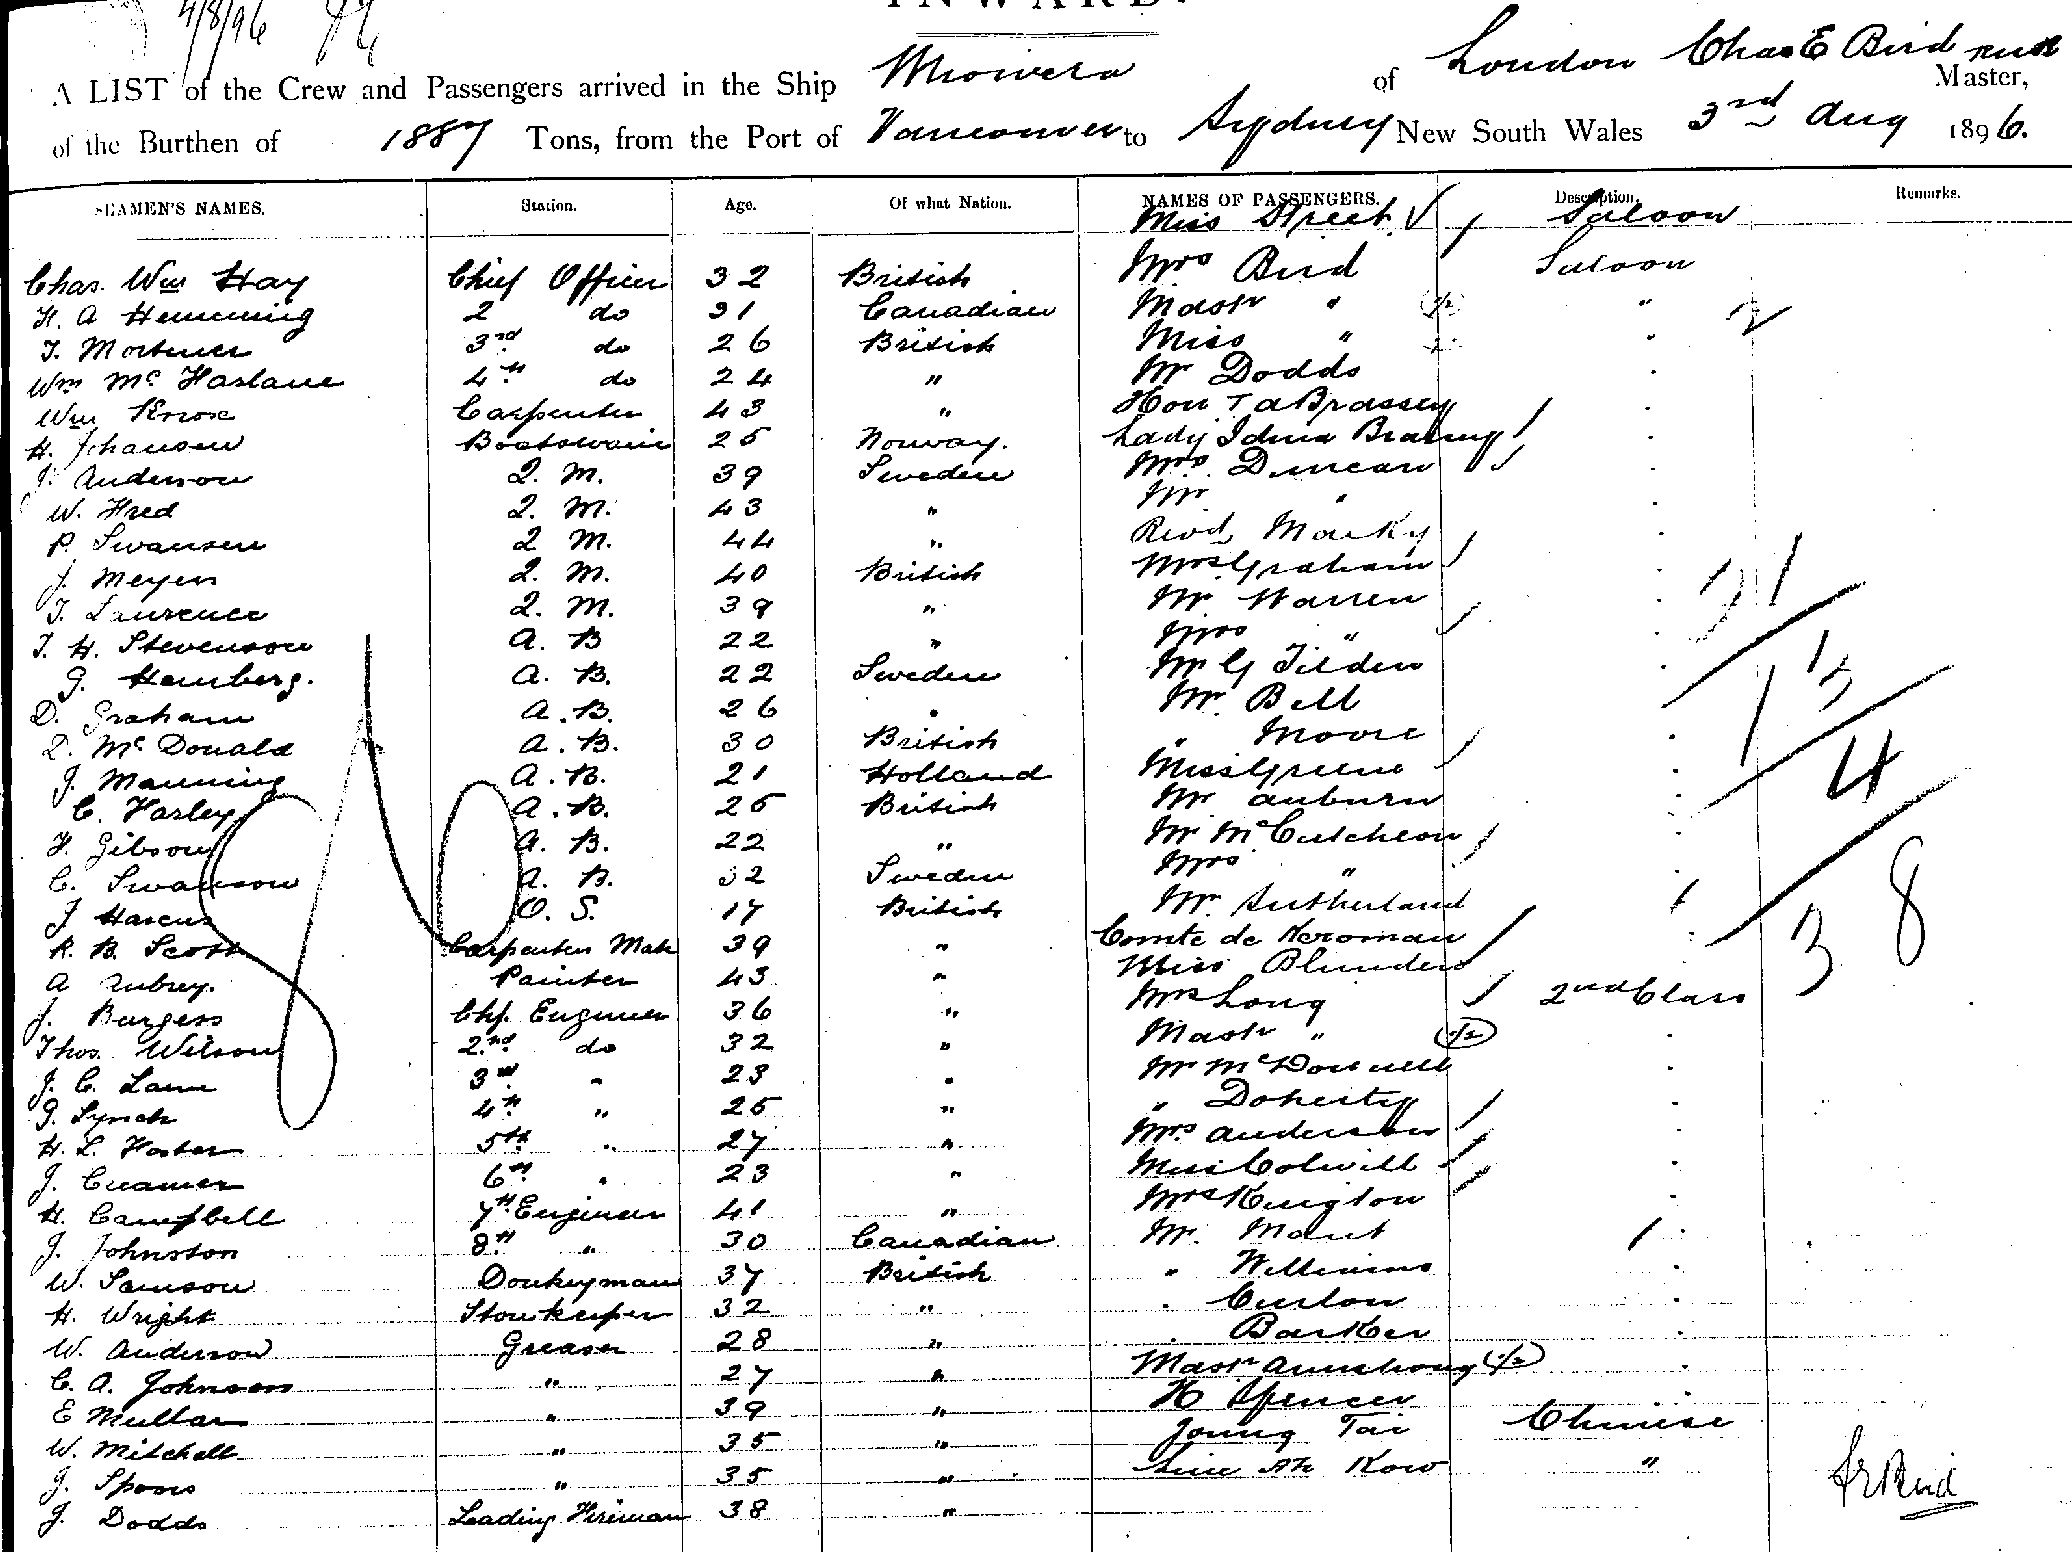 4/8/96
INWARD.
A LIST of the Crew and Passengers arrived in the Ship Miowera of London Chas E Bird Master,
of the Burthen of 1887 Tons, from the Port of Vancouver to Sydney New South Wales 3rd Aug 1896.
SEAMEN'S NAMES. Station. Age. Of what Nation. NAMES OF PASSENGERS. Description. Remarks.
Miss Street Saloon
Chas. Wm Hay Chief Officer 32 British Mrs Bird Saloon
H. A Hemming 2 do 31 Canadian Mastr " "
T. Mortimer 3rd do 26 British Miss "
Wm Mc Farlane 4th do 24 " Mr Dodds
Wm Knox Carpenter 43 " Hon T a Brassey
H. Johansen Boatswain 25 Norway. Lady Idina Brassey
J. Anderson Q. M. 39 Sweden Mrs Duncan
W. Fred Q. M. 43 " Mr "
P. Swansen Q M. 44 " Revd Macky
J. Meyers Q. M. 40 British Mrs Graham
T. Laurence Q. M. 39 " Mr Warren
T. H. Stevenson A. B 22 " Mrs "
G. Hamberg. A. B. 22 Sweden Mr G Tilden
D. Graham A. B. 26 " Mr. Bell
D. Mc Donald A. B. 30 British " Moore
J. Manning A. B. 21 Holland Miss Greene
C. Farley A. B. 25 British Mr Auburn
F. Gibson A. B. 22 " Mr McCutcheon
C. Swanson A. B. 32 Sweden Mrs "
J Harcus O. S. 17 British Mr. Sutherland
R. B. Scott Carpenters Mate 39 " Comte de Keroman
A Aubrey. Painter 43 " Miss Blunden
J. Burgess Chf. Engineer 36 " Mrs Long 2nd Class
Thos. Wilson 2nd do 32 " Mastr "
J. C. Lane 3rd " 23 " Mr McDonnell
J. Lynch 4th " 25 " " Doherty
H. L. Foster 5th " 27 " Mrs Anderson
J. Creamer 6th " 23 " Miss Colwill
H. Campbell 7th Engineer 41 " Mrs Kington
J. Johnston 8th " 30 Canadian Mr. Mant
W. Samson Donkeyman 37 British " Williams
H. Wright Storekeeper 32 " " Curlow
W. Anderson Greaser 28 " " Barker
C. A. Johnson " 27 " Mastr Armstrong
E Mullar " 39 " H Spencer
W. Mitchell " 35 " Joung Tai Chinese
J. Spoors " 35 " Ah Kow "
J. Dodds Leading Fireman 38 "